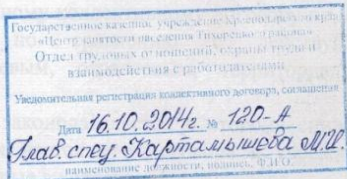 Государственное казенное учреждение Краснодарского края
«Центр занятости населения Тихорецкого района»
Отдел трудовых отношений, охраны труда и
взаимодействия с работодателями
Уведомительная регистрация коллективного договора, соглашения
Дата 16.10.2014г. № 120-А
Глав. спец. Картамышева М.И.
наименование должности, подпись, Ф.И.О.